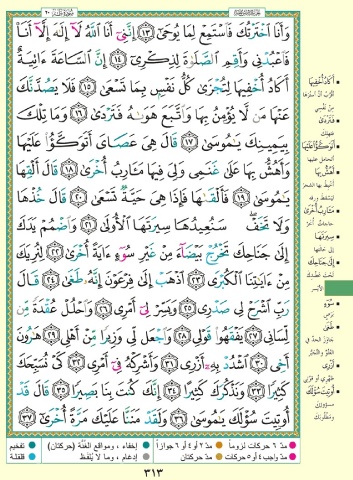 سُورَةُ طه ٢٠
وَأَنَا ٱخْتَرْتُكَ فَٱسْتَمِعْ لِمَا يُوحَىٰٓ ١٣ إِنَّنِىٓ أَنَا ٱللَّهُ لَآ إِلَٰهَ إِلَّآ أَنَا۠
فَٱعْبُدْنِى وَأَقِمِ ٱلصَّلَوٰةَ لِذِكْرِىٓ ١٤ إِنَّ ٱلسَّاعَةَ ءَاتِيَةٌ
أَكَادُ أُخْفِيهَا لِتُجْزَىٰ كُلُّ نَفْسٍۭ بِمَا تَسْعَىٰ ١٥ فَلَا يَصُدَّنَّكَ
عَنْهَا مَن لَّا يُؤْمِنُ بِهَا وَٱتَّبَعَ هَوَىٰهُ فَتَرْدَىٰ ١٦ وَمَا تِلْكَ
بِيَمِينِكَ يَٰمُوسَىٰ ١٧ قَالَ هِىَ عَصَاىَ أَتَوَكَّؤُا۟ عَلَيْهَا
وَأَهُشُّ بِهَا عَلَىٰ غَنَمِى وَلِىَ فِيهَا مَـَٔارِبُ أُخْرَىٰ ١٨ قَالَ أَلْقِهَا
يَٰمُوسَىٰ ١٩ فَأَلْقَىٰهَا فَإِذَا هِىَ حَيَّةٌ تَسْعَىٰ ٢٠ قَالَ خُذْهَا
وَلَا تَخَفْ سَنُعِيدُهَا سِيرَتَهَا ٱلْأُولَىٰ ٢١ وَٱضْمُمْ يَدَكَ
إِلَىٰ جَنَاحِكَ تَخْرُجْ بَيْضَآءَ مِنْ غَيْرِ سُوٓءٍ ءَايَةً أُخْرَىٰ ٢٢ لِنُرِيَكَ
مِنْ ءَايَٰتِنَا ٱلْكُبْرَى ٢٣ ٱذْهَبْ إِلَىٰ فِرْعَوْنَ إِنَّهُۥ طَغَىٰ ٢٤ قَالَ
رَبِّ ٱشْرَحْ لِى صَدْرِى ٢٥ وَيَسِّرْ لِىٓ أَمْرِى ٢٦ وَٱحْلُلْ عُقْدَةً مِّن
لِّسَانِى ٢٧ يَفْقَهُوا۟ قَوْلِى ٢٨ وَٱجْعَل لِّى وَزِيرًا مِّنْ أَهْلِى ٢٩ هَٰرُونَ
أَخِى ٣٠ ٱشْدُدْ بِهِۦٓ أَزْرِى ٣١ وَأَشْرِكْهُ فِىٓ أَمْرِى ٣٢ كَىْ نُسَبِّحَكَ
كَثِيرًا ٣٣ وَنَذْكُرَكَ كَثِيرًا ٣٤ إِنَّكَ كُنتَ بِنَا بَصِيرًا ٣٥ قَالَ قَدْ
أُوتِيتَ سُؤْلَكَ يَٰمُوسَىٰ ٣٦ وَلَقَدْ مَنَنَّا عَلَيْكَ مَرَّةً أُخْرَىٰٓ ٣٧
أَكَادُ أُخْفِيهَا
فَتَرْدَىٰ
أَتَوَكَّؤُا۟ عَلَيْهَا
أَهُشُّ بِهَا
مَـَٔارِبُ أُخْرَىٰ
سِيرَتَهَا
إِلَىٰ جَنَاحِكَ
سُوٓءٍ
بَرَصٍ
طَغَىٰ
أَزْرِى
أُوتِيتَ سُؤْلَكَ
مدّ ٦ حركات لزوماً مدّ ٢ أو ٤ أو ٦ جوازاً إخفاء، ومواقع الغُنَّة (حركتان) تفخيم
مدّ واجب ٤ أو ٥ حركات مدّ حركتان إدغام، وما لا يُلفَظ قلقلة
٣١٣